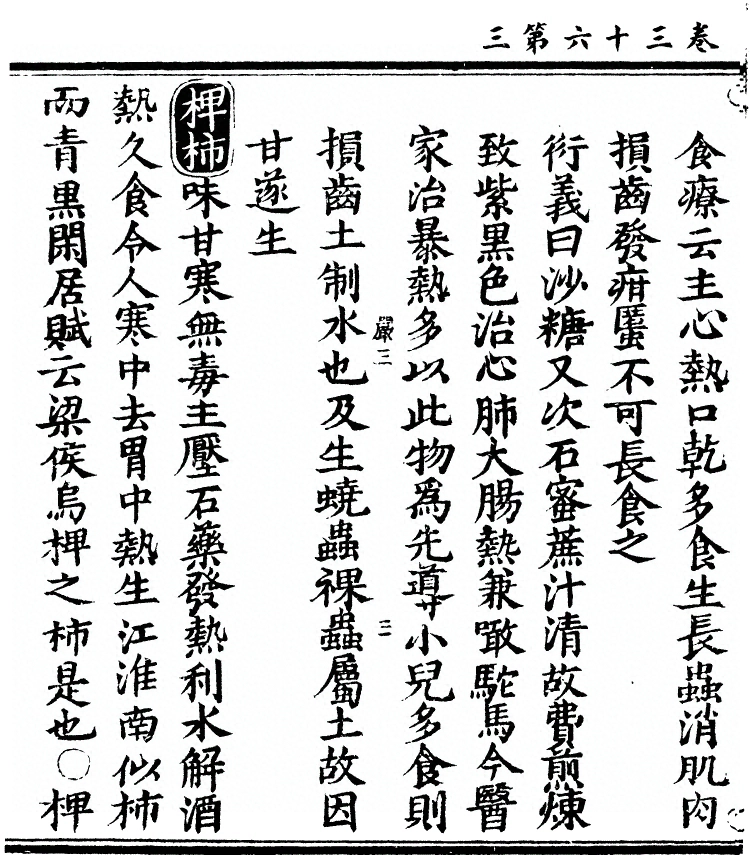 卷三十六第三
食療云主心熱口乾多食生長蟲消肌肉
損齒發疳䘌不可長食之
衍義曰沙糖又次石蜜蔗汁清故費煎煉
致紫黑色治心肺大腸熱兼噉駝馬今醫
家治暴熱多以此物爲先導小兒多食則
嚴三
三
損齒土制水也及生蟯蟲裸蟲屬土故因
甘遂生
椑柿味甘寒無毒主壓石藥發熱利水解酒
熱久食令人寒中去胃中熱生江淮南似柿
而青黑閑居賦云梁侯烏椑之柿是也〇椑